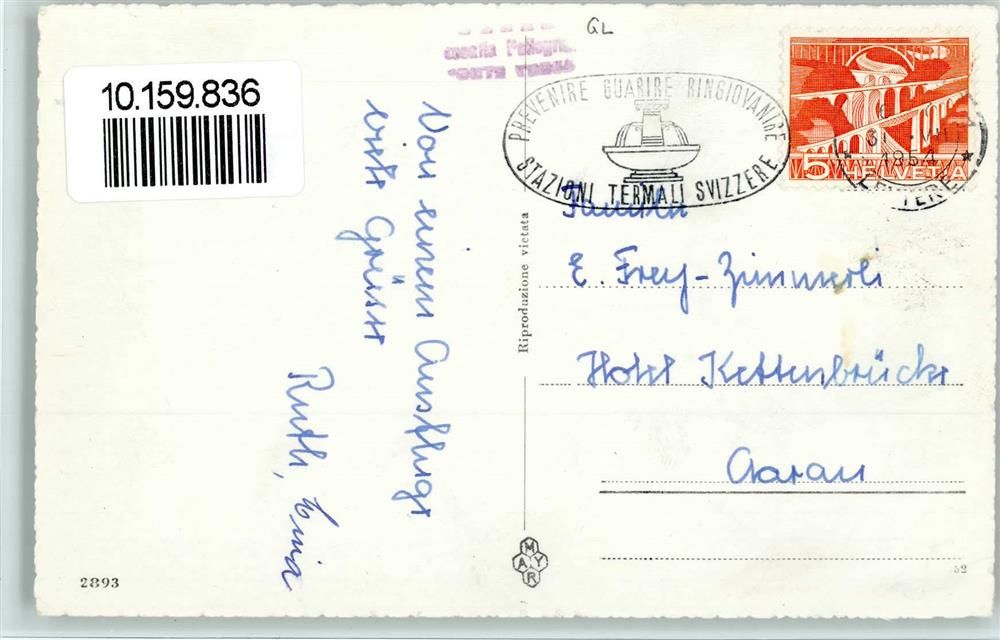 10.159.836
GL
PREVENIRE GUARIRE RINGIOVANIRE
STAZIONI TERMALI SVIZZERE
5 HELVETIA
1954
Von einem Ausfluge
viele Grüsse
Ruth,
Riproduzione vietata
Familie
E. Frey-Zimmerli
Hotel Kettenbrücke
Aarau
MAYR
2893
52